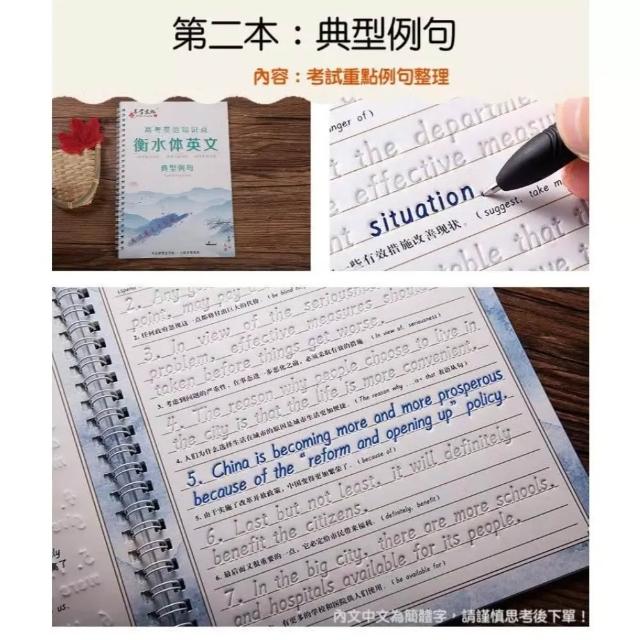 第二本：典型例句
內容：考試重點例句整理
高考英语知识点
衡水体英文
典型例句
anger of)
the departme
e effective measu
situation
些有效措施改善现状。(suggest, take m
table that t
2. Any go
point, may pay
2. 任何政府忽视这一点都将付出巨大的代价。
3. In view of the seriousne
problem, effective measures shou
taken before things get worse.
3. 考虑到问题的严重性，在事态进一步恶化之前，必须采取有效的措施。(In view of, seriousness)
4. The reason why people choose to live in
the city is that the life is more convenient.
4. 人们为什么选择生活在城市的原因是城市生活更加便捷。(The reason why ... is+ that 表语从句)
5. China is becoming more and more prosperous
because of the "reform and opening up" policy.
5. 由于实施了改革开放政策，中国变得更加繁荣了。(because of)
6. Last but not least, it will definitely
benefit the citizens.
6. 最后而又很重要的一点，它必定给市民带来福利。(definitely, benefit)
7. In the big city, there are more schools,
and hospitals available for its people.
有更多的学校和医院供人们使用。(be available for)
內文中文為簡體字，請謹慎思考後下單！